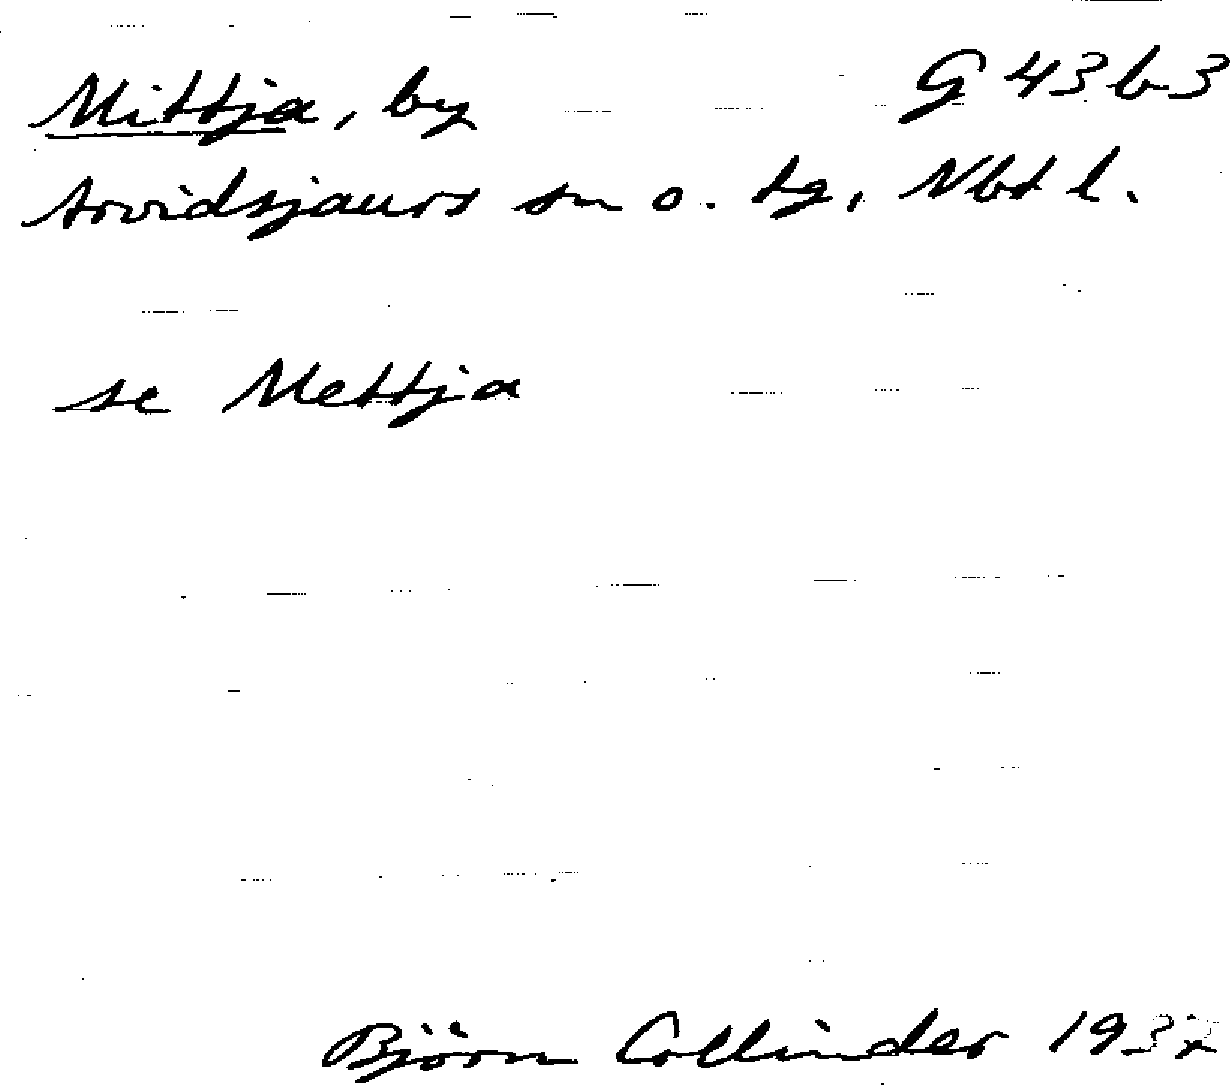 Mittja, by G 43 b 3
Arvidsjaurs sn o. tg, Nbt l.
se Mettja
Björn Collinder